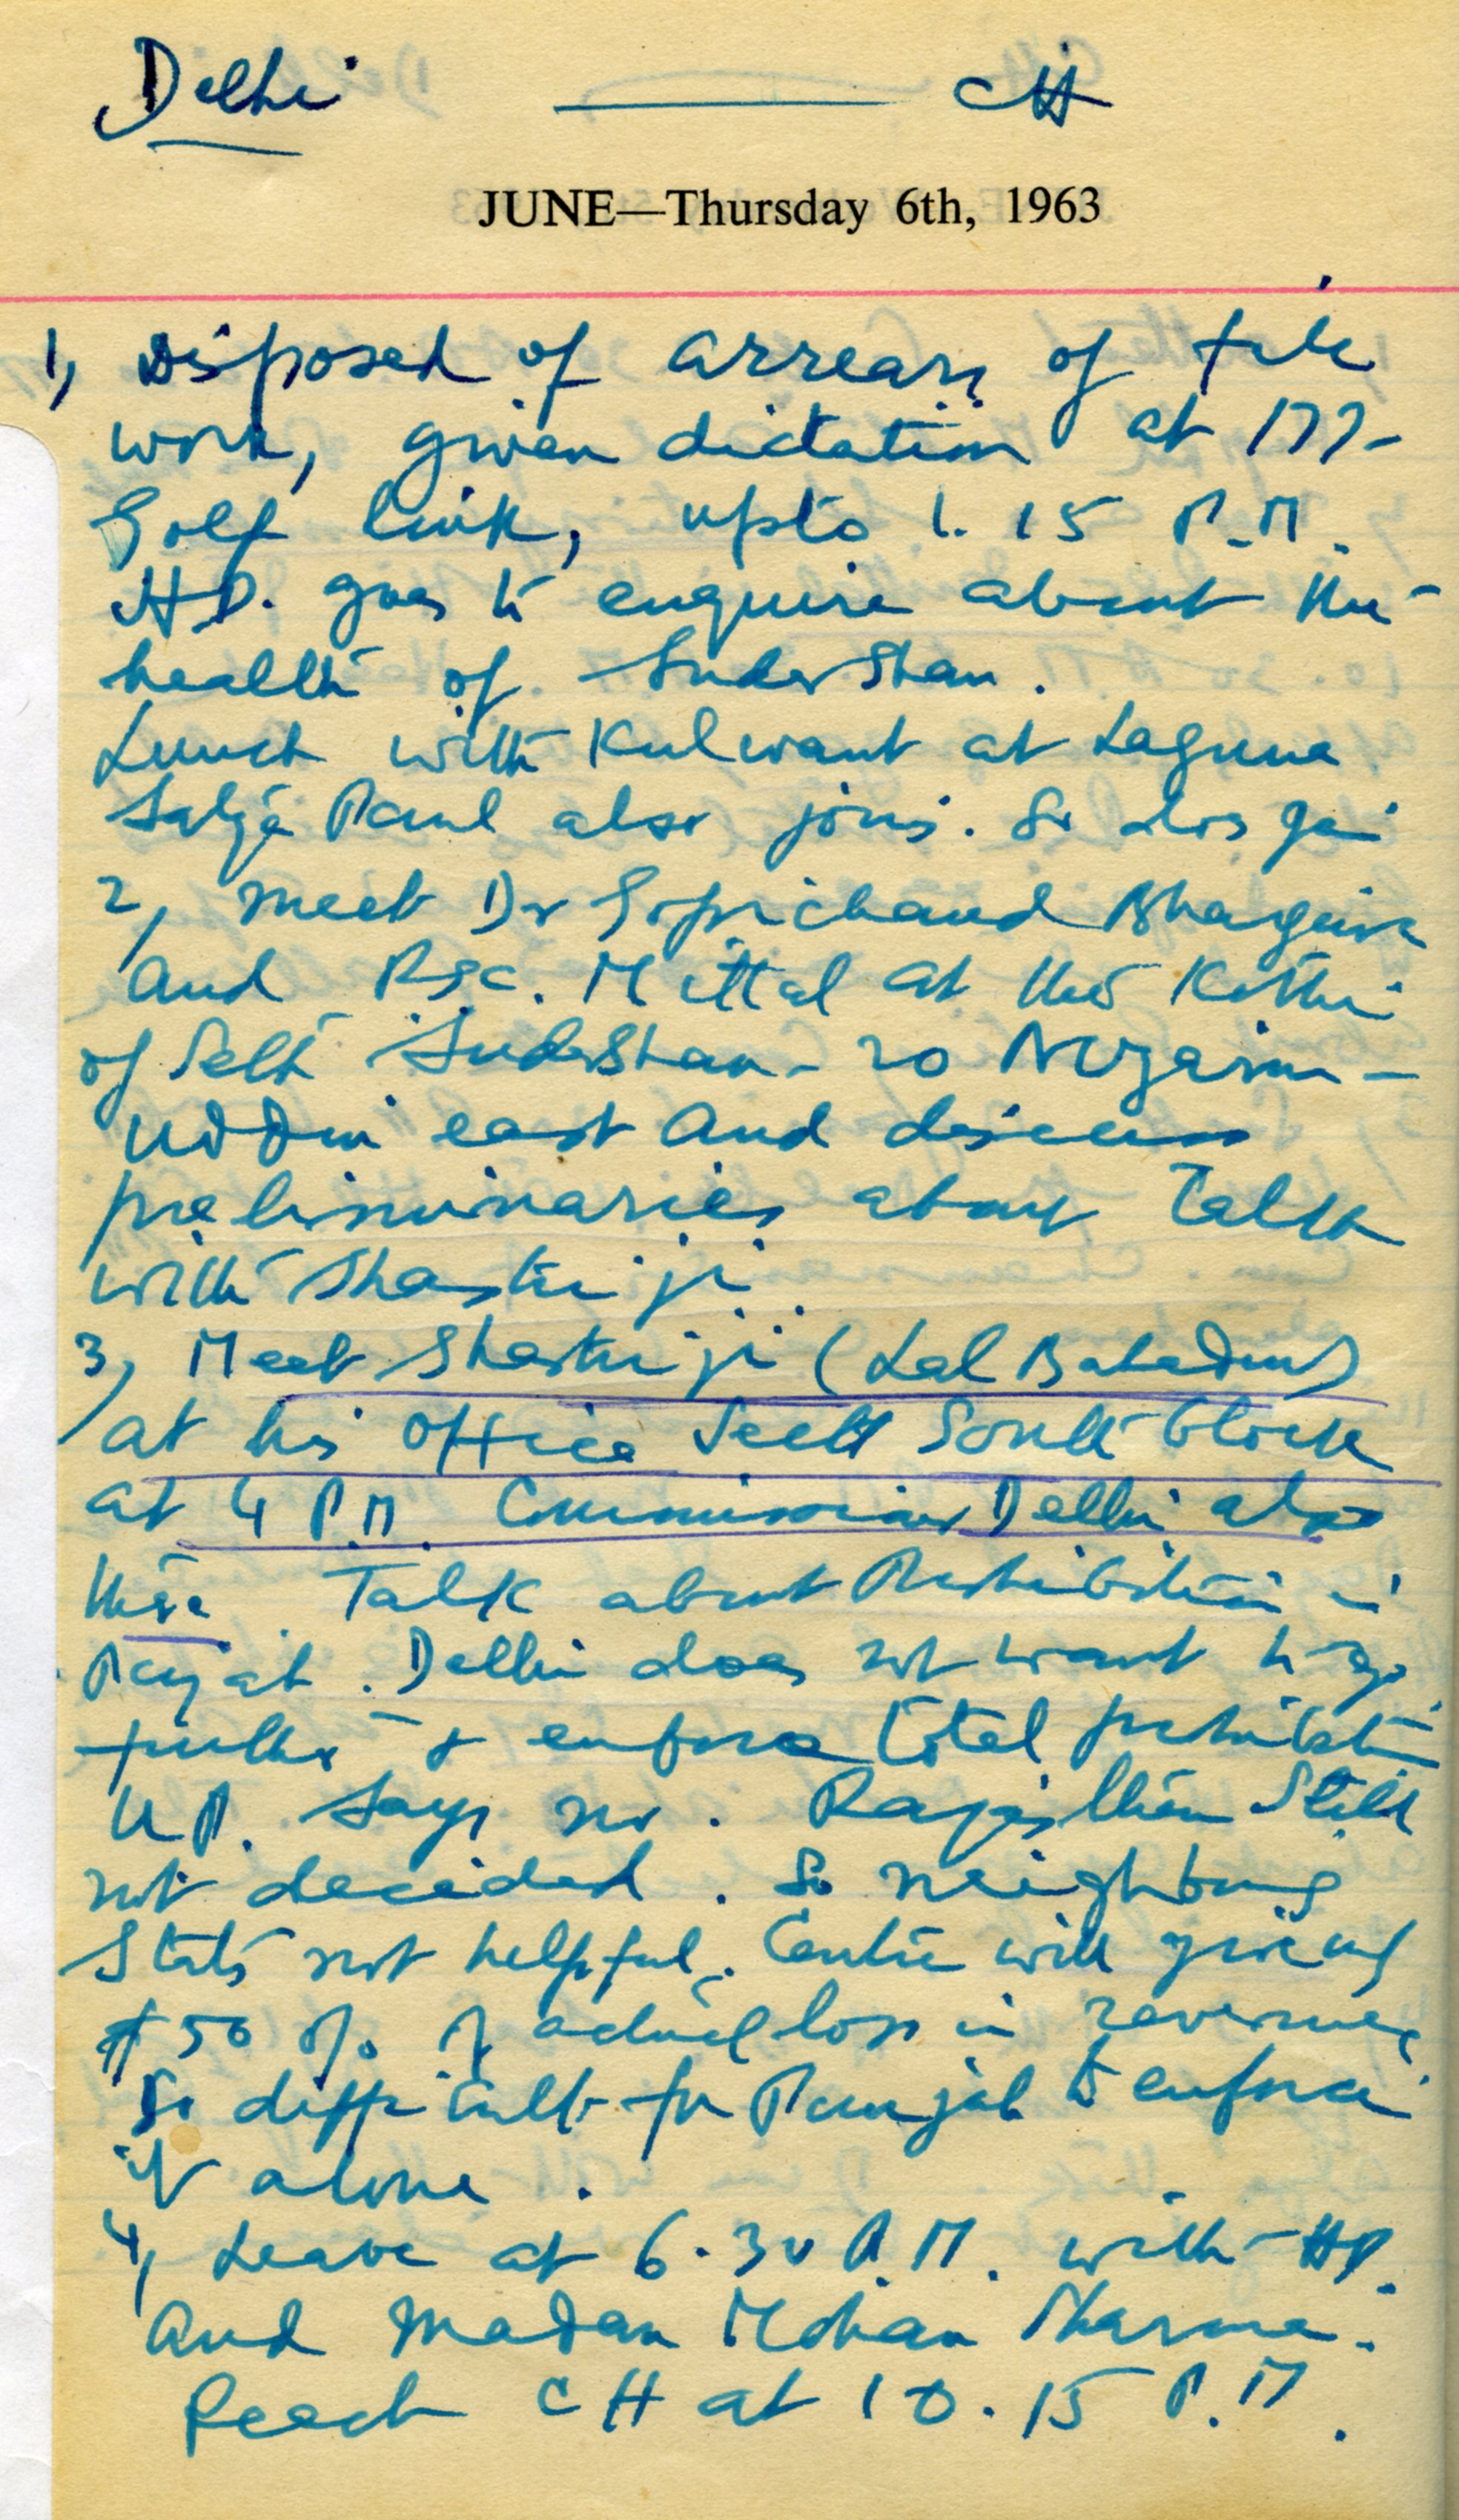 Delhi —— CH
JUNE—Thursday 6th, 1963
1, Disposed of arrears of file
work, given dictation at 177-
Golf Link, upto 1.15 P.M.
H.D. goes to enquire about the
health of Sudershan.
Lunch with Kulwant at Laguna
Satya Paul also joins. So does Jai
2, Meet Dr Gopichand Bhargava
and R.C. Mittal at the Kothi
of Seth Sudershan - 20 Nizam-
uddin east and discuss
preliminaries about Talk
with Shastri ji.
3, Meet Shastri ji (Lal Bahadur)
at his office Sectt South Block
at 4 P.M. Commissioner Delhi also
there. Talk about Prohibition in
Punjab. Delhi does not want to go
further & enforce total prohibition
U.P. says no. Rajasthan still
not decided. So neighbouring
States not helpful. Centre will give only
50 % of actual loss in revenue,
So difficult for Punjab to enforce
it alone.
4, Leave at 6.30 P.M. with HD.
and Madan Mohan Sharma.
Reach CH at 10.15 P.M.